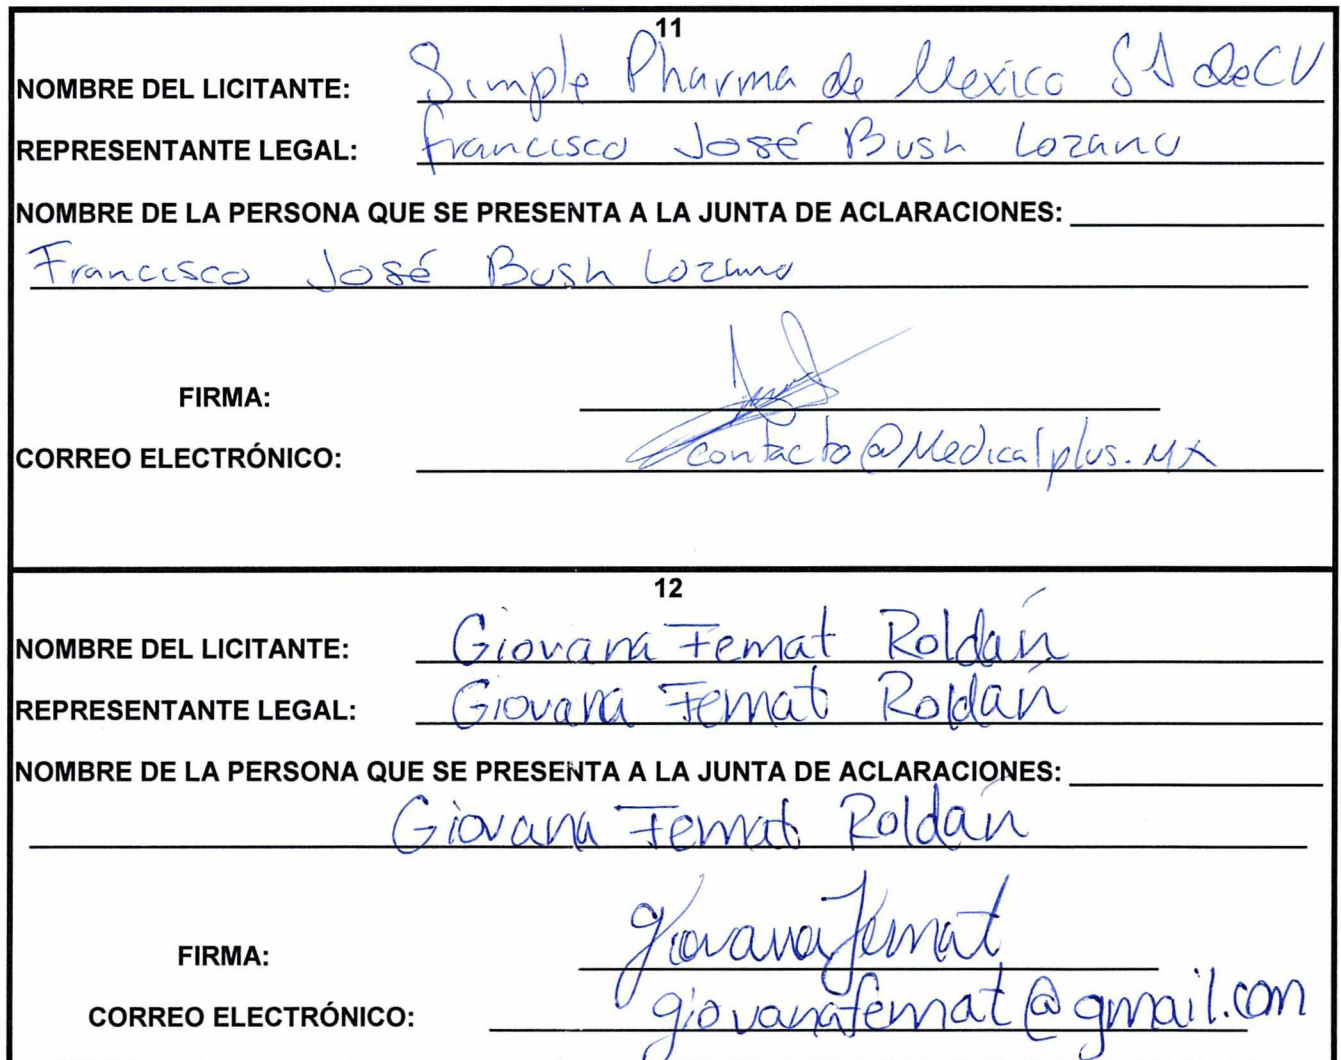 11
NOMBRE DEL LICITANTE: Simple Pharma de Mexico SA de CV
REPRESENTANTE LEGAL: Francisco José Bush Lozano
NOMBRE DE LA PERSONA QUE SE PRESENTA A LA JUNTA DE ACLARACIONES:
Francisco José Bush Lozano
FIRMA:
CORREO ELECTRÓNICO: contacto@Medicalplus.MX
12
NOMBRE DEL LICITANTE: Giovana Femat Roldán
REPRESENTANTE LEGAL: Giovana Femat Roldán
NOMBRE DE LA PERSONA QUE SE PRESENTA A LA JUNTA DE ACLARACIONES:
Giovana Femat Roldán
FIRMA: Giovana Femat
CORREO ELECTRÓNICO: giovanafemat@gmail.com